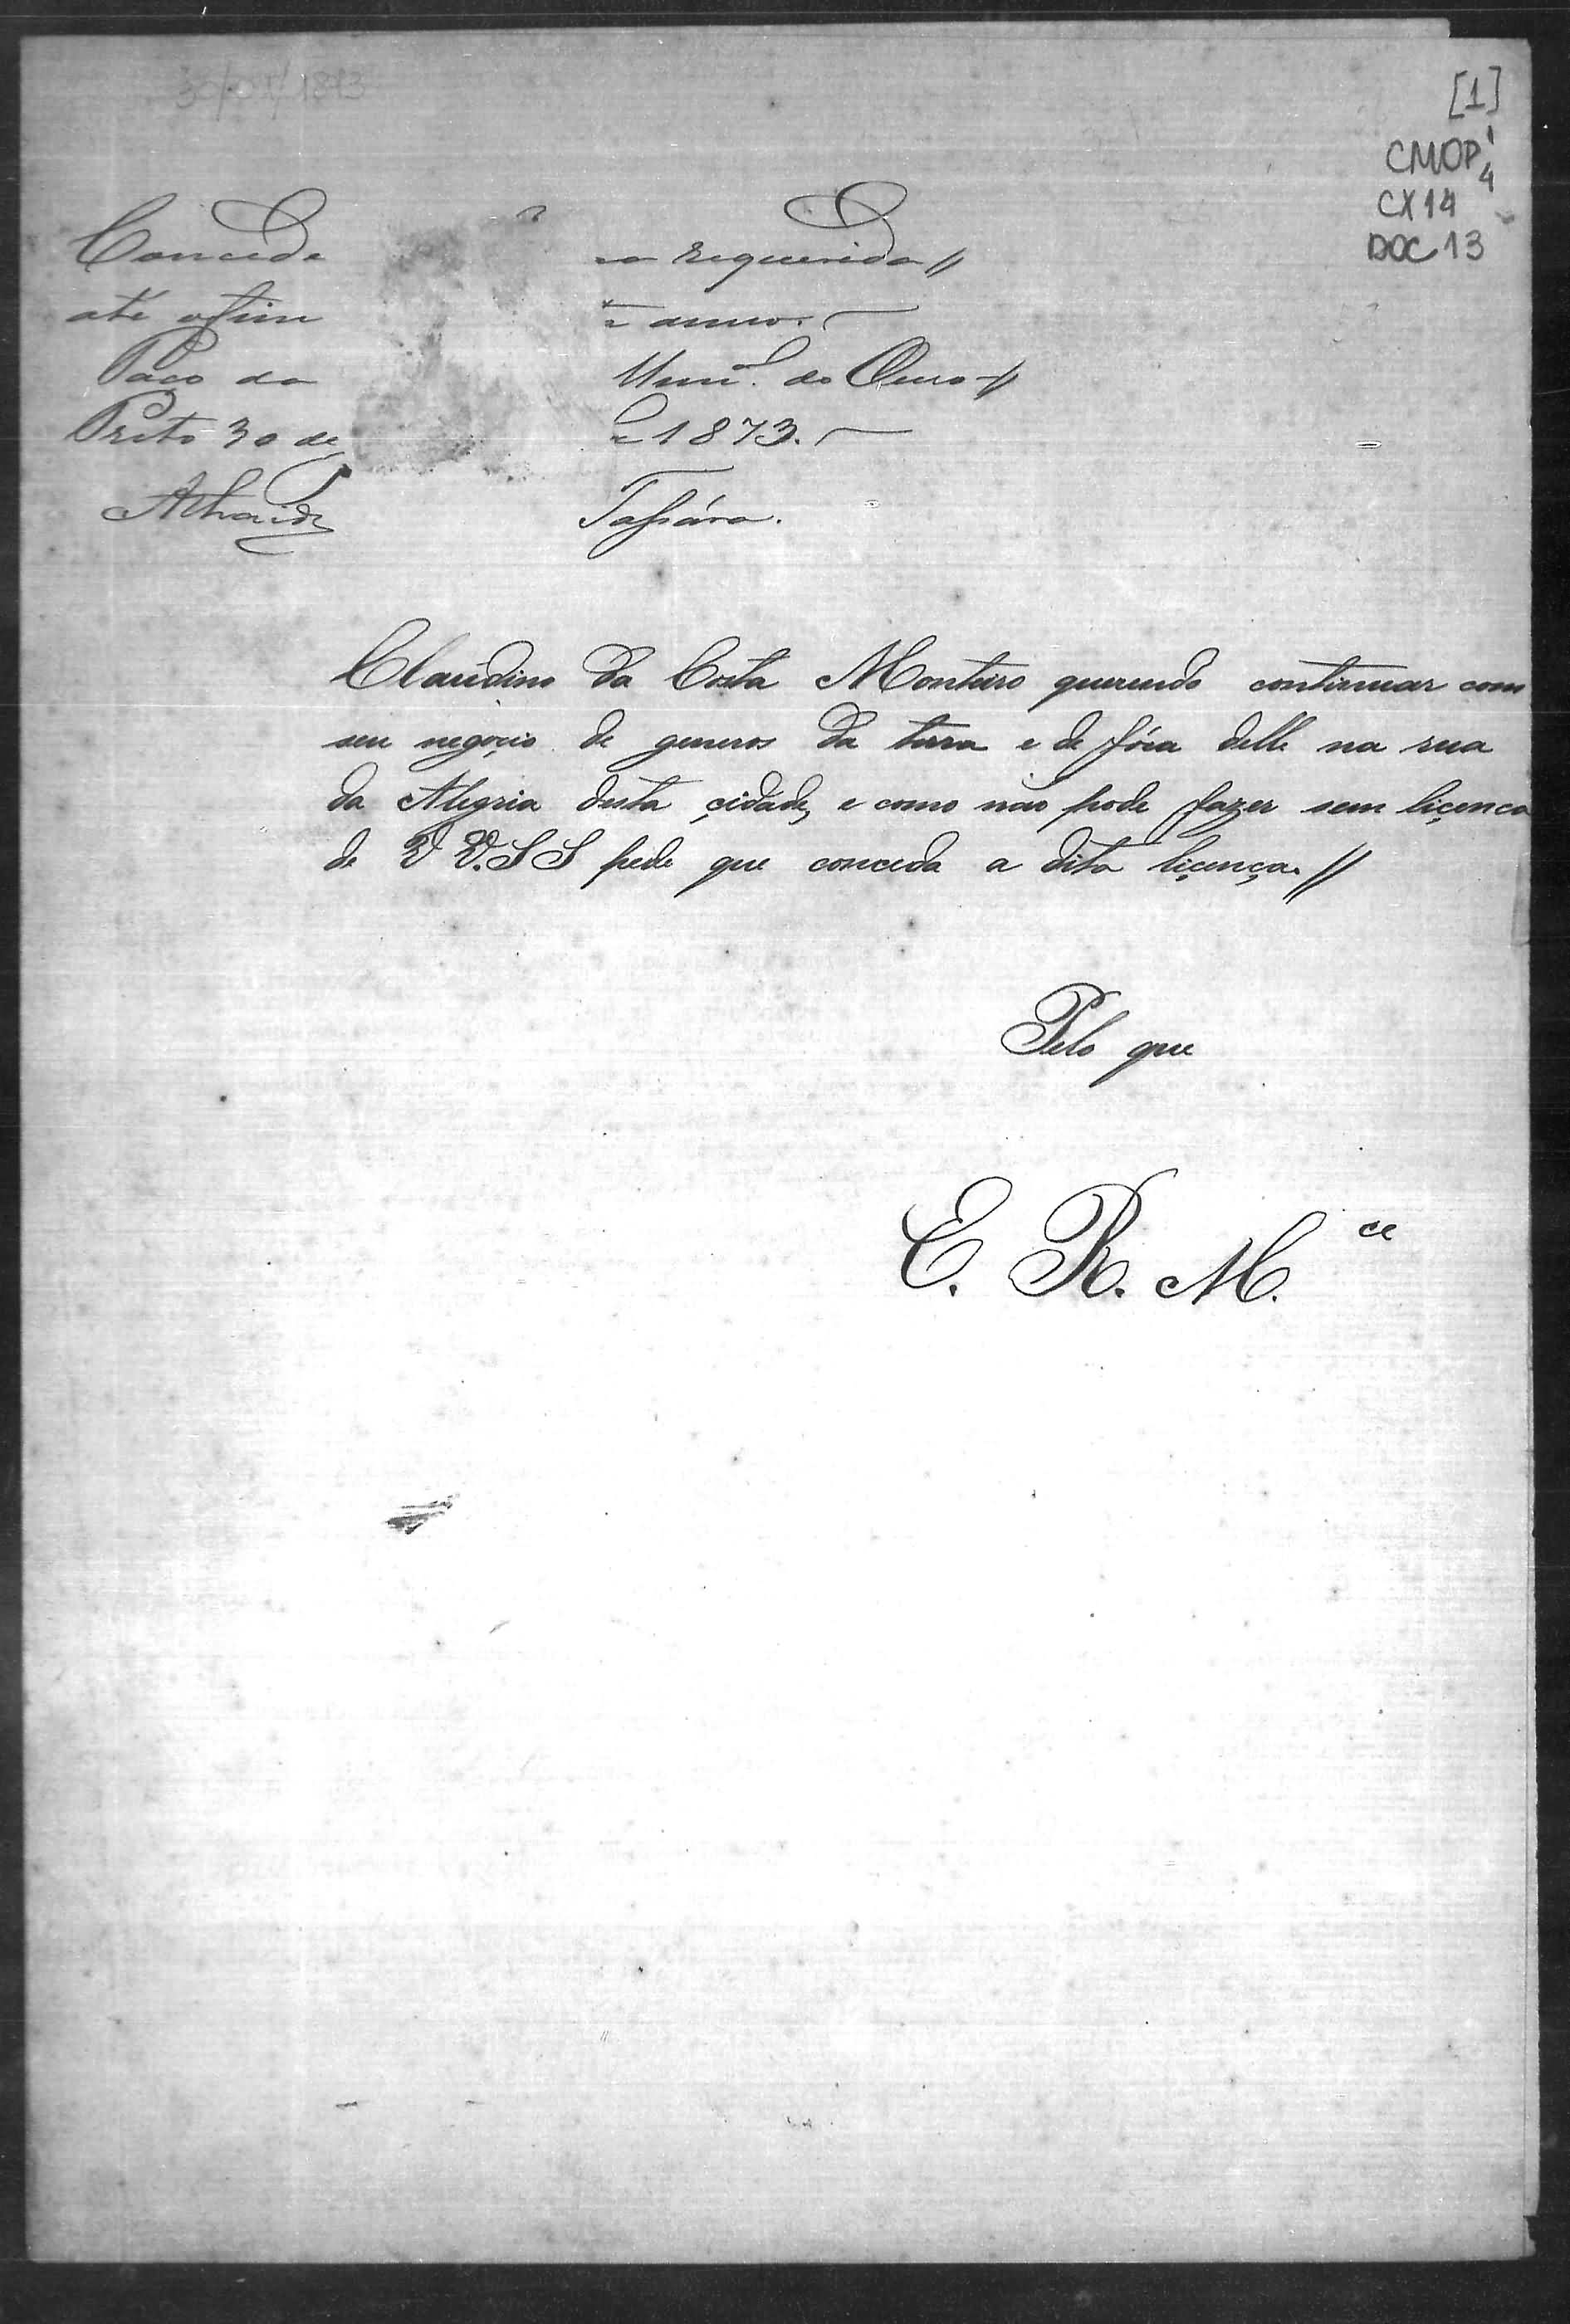 30/01/1873
[1]
CMOP 1/4
CX 14
DOC 13
Concede a requerida //
até o fim anno.
Paço da Munl. do Ouro-//
Preto 30 de 1873.
Athaide Tassára.
Claúdino da Costa Monteiro querendo continuar com
seu negoçio de generos da terra e de fóra delle na rua
da Alegria desta çidade, e como não pode fazer sem liçenca
de V V.S S pede que conceda a dita liçença. //
Pelo que
E. R. M. ce